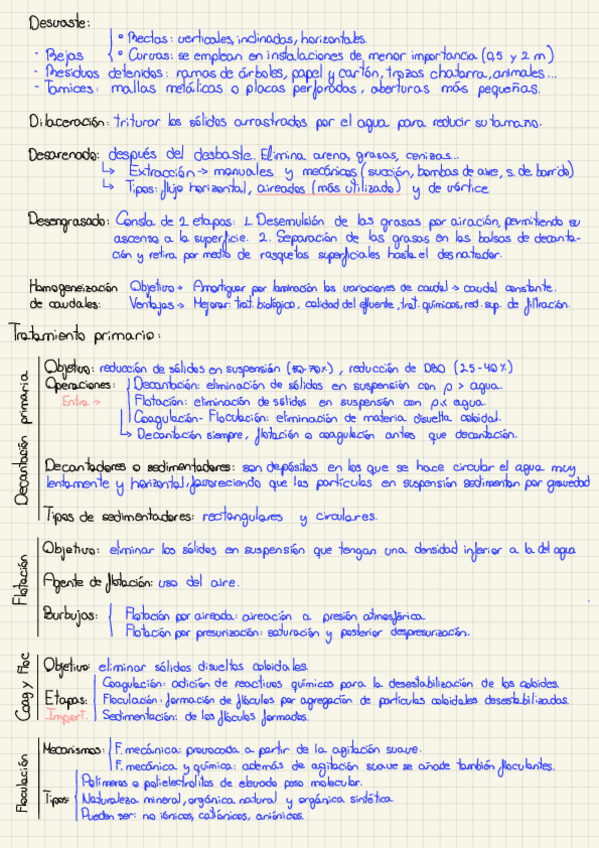 Desvaste:
° Rectas: verticales, inclinadas, horizontales.
- Rejas ° Curvas: se emplean en instalaciones de menor importancia (0,5 y 2 m)
- Residuos detenidos: ramas de árboles, papel y cartón, trozos chatarra, animales...
- Tamices: mallas metálicas o placas perforadas, aberturas más pequeñas.
Dilaceración: triturar los sólidos arrastrados por el agua para reducir su tamaño.
Desarenado: después del desbaste. Elimina arena, grasas, cenizas...
↳ Extracción → manuales y mecánicos (succión, bombas de aire, s. de barrido)
↳ Tipos: flujo horizontal, aireados (más utilizado) y de vórtice
Desengrasado: Consta de 2 etapas: 1. Desemulsión de las grasas por airación, permitiendo su
ascenso a la superficie. 2. Separación de las grasas en las balsas de decanta-
ción y retira por medio de rasquetas superficiales hasta el desnatador.
Homogeneización Objetivo → Amortiguar por laminación las variaciones de caudal → caudal constante.
de caudales: Ventajas → Mejorar: trat. biológico, calidad del efluente, trat. químicos, red. sup. de filtración.
Tratamiento primario:
Decantación primaria
Objetivo: reducción de sólidos en suspensión (50-70%), reducción de DBO (25-40%)
Operaciones: Decantación: eliminación de sólidos en suspensión con ρ > agua.
Entra → Flotación: eliminación de sólidos en suspensión con ρ < agua.
Coagulación-Floculación: eliminación de materia disuelta coloidal.
↳ Decantación siempre, flotación o coagulación antes que decantación.
Decantadores o sedimentadores: son depósitos en los que se hace circular el agua muy
lentamente y horizontal, favoreciendo que las partículas en suspensión sedimenten por gravedad
Tipos de sedimentadores: rectangulares y circulares.
Flotación
Objetivo: eliminar los sólidos en suspensión que tengan una densidad inferior a la del agua
Agente de flotación: uso del aire.
Burbujas: Flotación por aireada: aireación a presión atmosférica
Flotación por presurización: saturación y posterior despresurización.
Coag y Floc
Objetivo: eliminar sólidos disueltos coloidales.
Coagulación: adición de reactivos químicos para la desestabilización de los coloides.
Etapas: Floculación: formación de flóculos por agregación de partículas coloidales desestabilizadas.
Import. Sedimentación: de los flóculos formados.
Floculación
Mecanismos: F. mecánica: provocada a partir de la agitación suave.
F. mecánica y química: además de agitación suave se añade también floculantes.
Polímeros o polielectrolitos de elevado peso molecular.
Tipos: Naturaleza mineral, orgánica natural y orgánica sintética
Pueden ser: no iónicos, catiónicos, aniónicos.